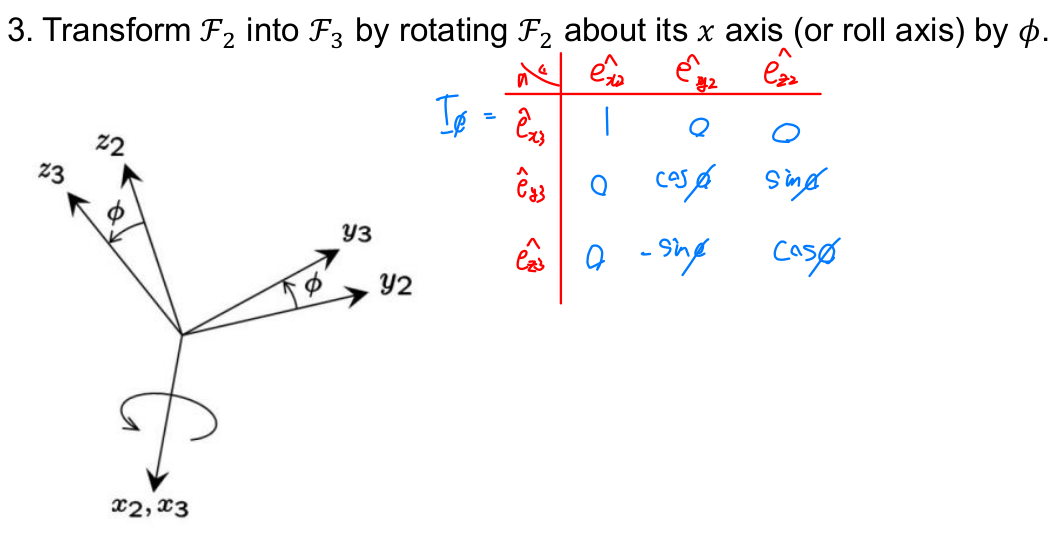 3. Transform ℱ₂ into ℱ₃ by rotating ℱ₂ about its x axis (or roll axis) by ϕ.
êx2 êy2 êz2
Iϕ = êx3 1 0 0
êy3 0 cosϕ sinϕ
êz3 0 -sinϕ cosϕ
z2
z3
ϕ
y3
ϕ
y2
x2, x3